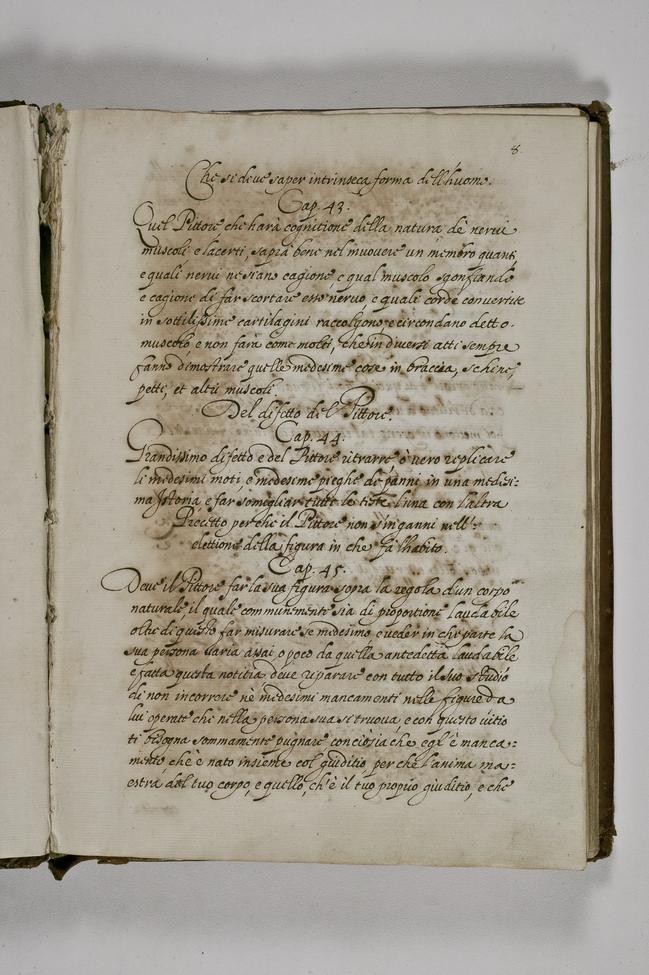 8.
Che si deue saper intrinseca forma dell'huomo.
Cap. 43.
Quel Pittore che harà cognitione della natura de nerui
muscoli e lacerti, saprà bene nel muouere un membro quanti
e quali nerui ne siano cagione, e qual muscolo sgonfiando
e cagione di far scortare esso neruo, e quale corde conuertite
in sottilissime cartilagini raccolgono, e circondano detto
muscolo e non farà come molti, che in diuersi atti sempre
fanno dimostrare quelle medesime cose in braccia, schine,
petti, et altri muscoli.
Del difetto del Pittore.
Cap. 44.
Grandissimo difetto e del Pittore ritrarre ò vero replicare
li medesimi moti, e medesime pieghe de panni in una medesi:
ma Istoria e far somegliar tutte le teste l'una con l'altra
Precetto perche il Pittore non s'inganni nell':
elettione della figura in che fà l'habito.
Cap. 45.
Deue il Pittore far la sua figura sopra la regola d'un corpo
naturale, il quale communemente sia di proportione laudabile
oltre di questo far misurare se medesimo e ueder in che parte la
sua persona uaria assai o poco da quella antedetta laudabile
e fatta questa notitia deue riparare con tutto il suo studio
di non incorrere ne medesimi mancamenti nelle figure da
lui operate che nella persona sua si truoua, e con questo uitio
ti bisogna sommamente pugnare conciosia che egl'è manca:
mento, che è nato insieme col giuditio, perche l'anima ma:
estra del tuo corpo, e quello, ch'è il tuo proprio giuditio, e che